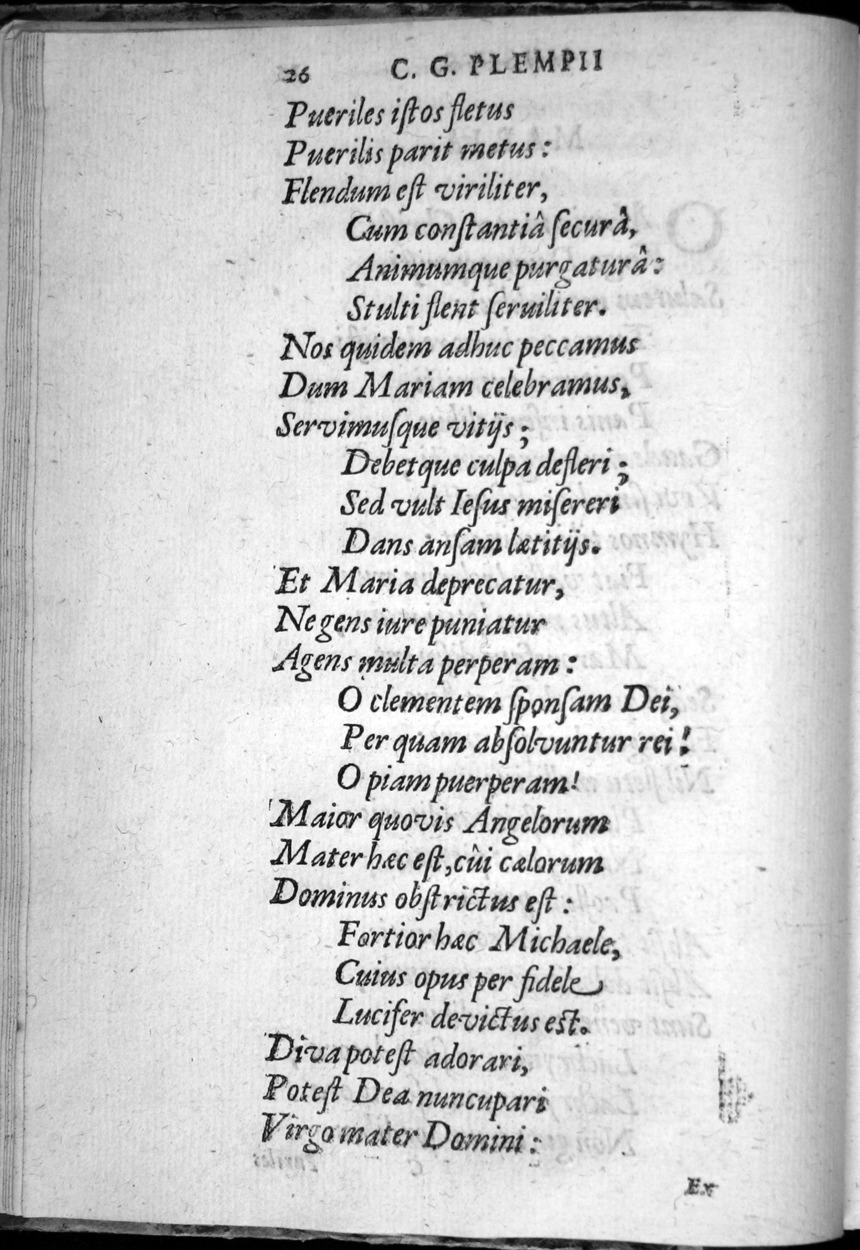 26 C. G. PLEMPII
Pueriles iſtos fletus
Puerilis parit metus :
Flendum eſt viriliter,
Cum conſtantiâ ſecurâ,
Animumque purgaturâ :
Stulti flent ſeruiliter.
Nos quidem adhuc peccamus
Dum Mariam celebramus,
Servimuſque vitijs ;
Debetque culpa defleri ;
Sed vult Ieſus miſereri
Dans anſam lætitijs.
Et Maria deprecatur,
Ne gens iure puniatur
Agens multa perperam :
O clementem ſponſam Dei,
Per quam abſolvuntur rei !
O piam puerperam !
Maior quovis Angelorum
Mater hæc eſt, cûi cælorum
Dominus obſtrictus eſt :
Fortior hæc Michaele,
Cuius opus per fidele
Lucifer devictus eſt.
Diva poteſt adorari,
Poteſt Dea nuncupari
Virgo mater Domini :
Ex